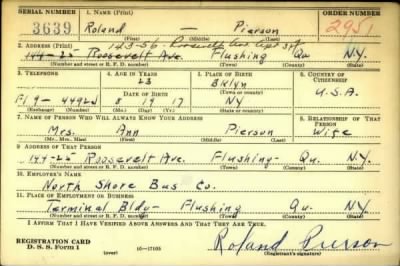 SERIAL NUMBER 1. NAME (Print) ORDER NUMBER
3639 Roland Pierson 2951
(First) (Middle) (Last)
143-56 Roosevelt Ave Apt
2. ADDRESS (Print)
144-25 Roosevelt Ave. Flushing Qu N.Y.
(Number and street or R. F. D. number) (Town) (County) (State)
3. TELEPHONE 4. AGE IN YEARS 5. PLACE OF BIRTH 6. COUNTRY OF CITIZENSHIP
23 Bklyn
DATE OF BIRTH
Fl 9- 4492J 8 19 17 NY U.S.A.
(Exchange) (Number) (Mo.) (Day) (Yr.) (State or county)
7. NAME OF PERSON WHO WILL ALWAYS KNOW YOUR ADDRESS 8. RELATIONSHIP OF THAT PERSON
Mrs. Ann Pierson Wife
(Mr., Mrs., Miss) (First) (Middle) (Last)
9. ADDRESS OF THAT PERSON
144-25 Roosevelt Ave. Flushing- Qu. N.Y.
(Number and street or R. F. D. number) (Town) (County) (State)
10. EMPLOYER'S NAME
North Shore Bus Co.
11. PLACE OF EMPLOYMENT OR BUSINESS
Terminal Bldg- Flushing Qu- N.Y.
(Number and street or R. F. D. number) (Town) (County) (State)
I AFFIRM THAT I HAVE VERIFIED ABOVE ANSWERS AND THAT THEY ARE TRUE.
REGISTRATION CARD
D. S. S. Form 1 (over) 16-17105
Roland Pierson
(Registrant's signature)